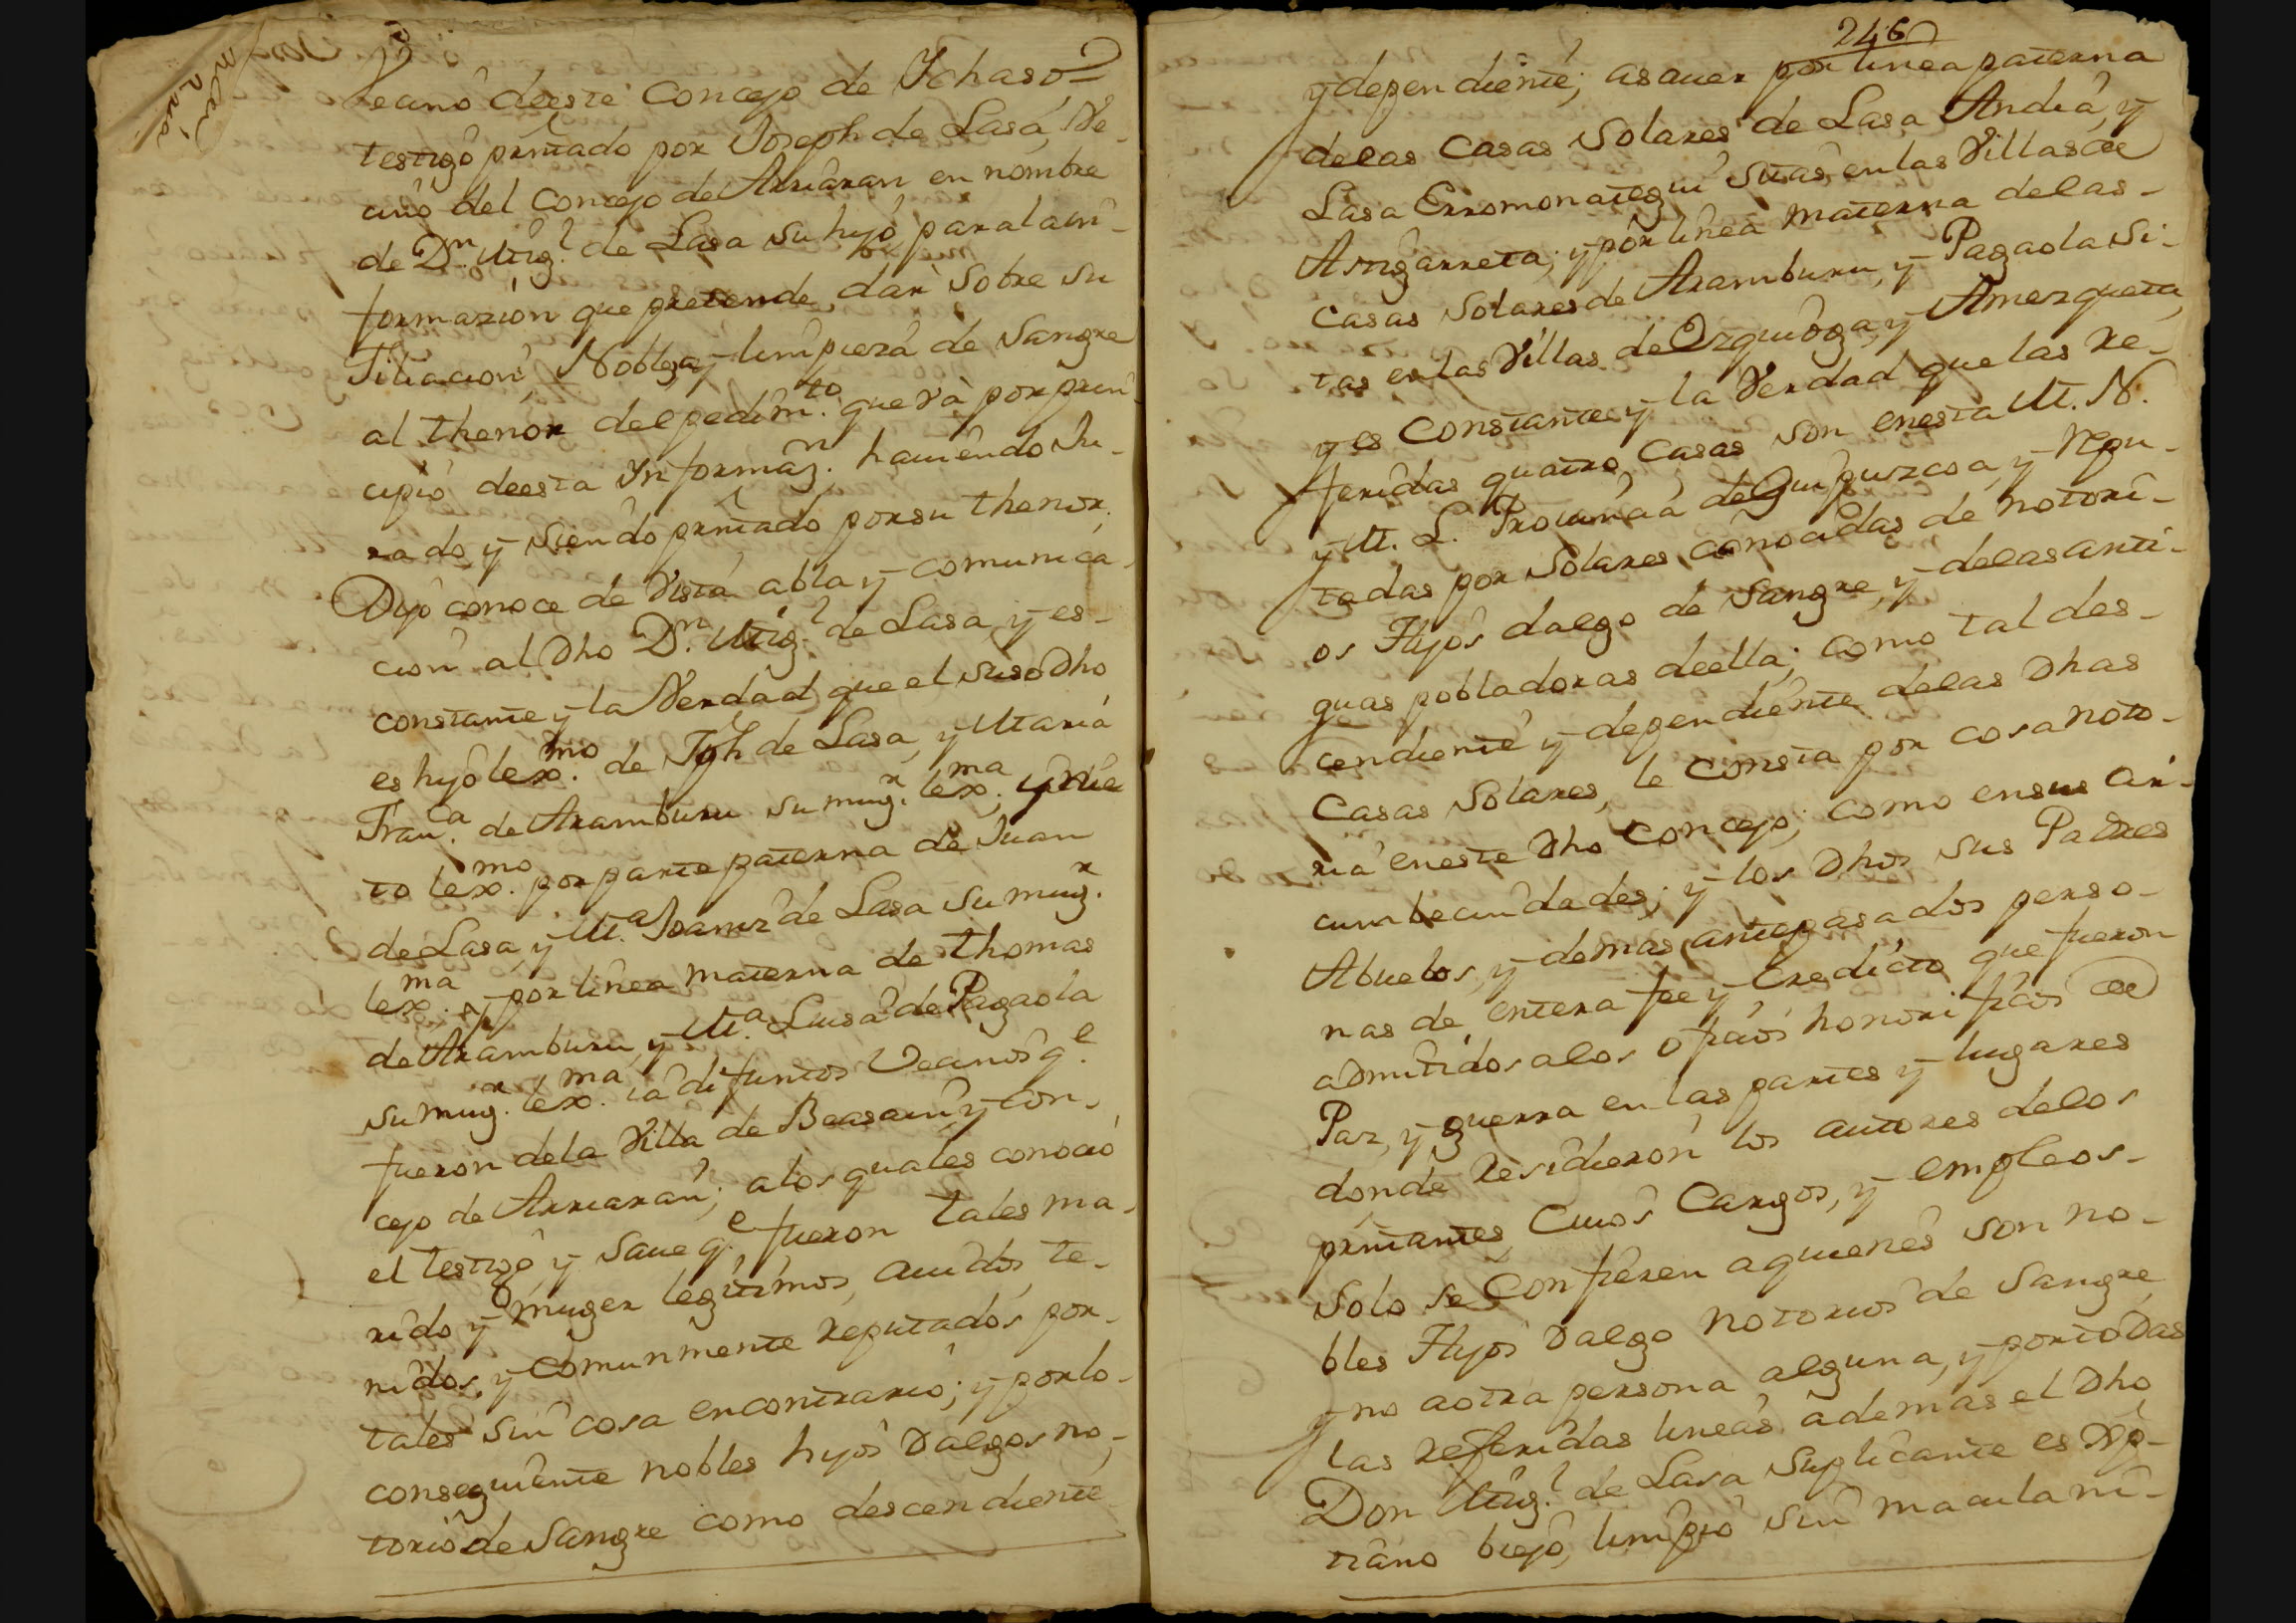 Vecino deeste Concejo de Ychaso
testigo prntado por Joseph de Lasa, Ve-
cino del Concejo de Arriaran en nombre
de Dn. Mig.l de Lasa su hijo paralain-
formazion que pretende dar sobre su
Filiacion, Nobleza, y limpieza de Sangre
al thenor del pedim.to que và por prin-
cipio deesta Informaz.n haviendo Ju-
rado, y siendo prntado por su thenor.
Dijo conoce de Vista abla y comunica-
cion al Dho Dn. Mig.l de Lasa, y es-
constante y la Verdad que el susodho
es hijo lex.mo de Jph de Lasa, y Maria
Fran.ca de Aramburu su mug.r lex.ma y nie
to lex.mo por parte paterna de Juan
de Lasa, y M.a Joaniz de Lasa su mug.r
lex.ma y por linea materna de thomas
de Aramburu, y M.a Luisa de Pagaola
su mug.r lex.ma ia difuntos Vecinos q.e
fueron dela Villa de Beasain, y Con-
cejo de Arriaran; alos quales conocio
el testigo, y save q.e fueron tales ma-
rido y muger legitimos, avidos, te-
nidos, y comunmente reputados por-
tales sin cosa encontrario; y porlo-
consequiente nobles hijos Dalgos no-
torios de Sangre como descendiente
246
y dependiente; asaver por linea paterna
delas Casas Solares de Lasa Andia, y
Lasa Erromonategui sitas, en las Villas de
Astigarreta; y por linea materna delas-
Casas Solares de Aramburu, y Pagaola Si-
tas en las Villas de Ezquioga, y Amezqueta,
y es Constante y la Verdad que las re-
feridas quatro Casas son enesta M. N.
y M. L. Provincia de Guipuzcoa, y Repu-
tadas por Solares conocidas de notori-
os Hijos dalgo de Sangre, y delas anti-
guas pobladoras deella; como tal des-
cendiente y dependiente delas Dhas
Casas Solares, le Consta por cosa noto-
ria eneste Dho Concejo; como en sus cir-
cumbecindades; y los Dhos sus Padres
Abuelos, y demas antepasados perso-
nas de entera fee y Credicto que fueron
admitidos alos ofizios honorificos de
Paz, y guerra en las partes y lugares
donde residieron los autores delos
prntantes Cuios Cargos, y empleos-
solo se Confieren aquienes son no-
bles Hijos Dalgo notorios de Sangre
y no aotra persona alguna, y portodas
las referidas lineas ademas el Dho
Don Mig.l de Lasa Suplicante es Xp-
tiano biejo, limpio sin macula ni-